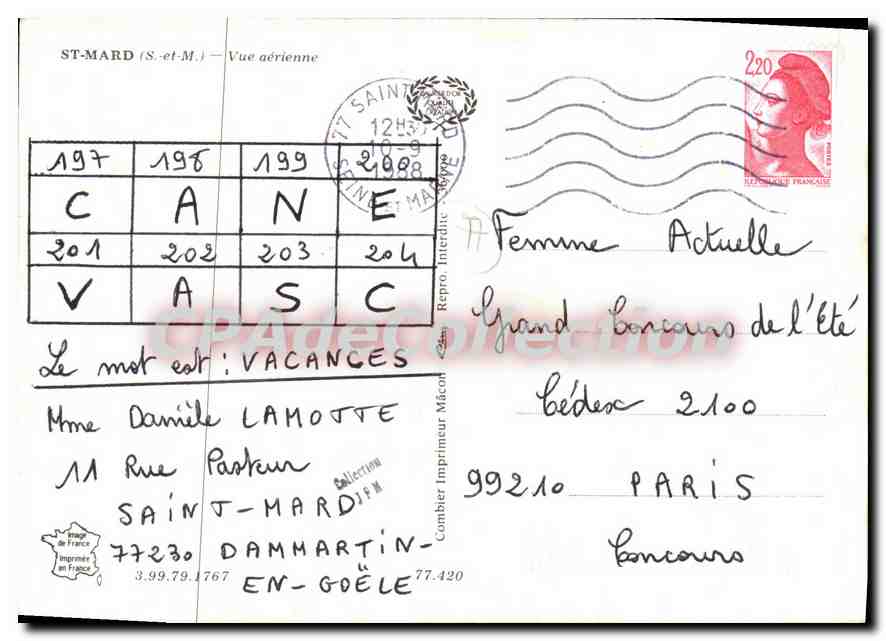 ST-MARD (S.-et-M.) — Vue aérienne
77 SAINT MARD
12H30
10-9
1988
SEINE ET MARNE
2,20
POSTES
REPUBLIQUE FRANÇAISE
197 198 199 200
C A N E
201 202 203 204
V A S C
Le mot est : VACANCES
Mme Danièle LAMOTTE
11 Rue Pasteur
SAINT-MARD
77230 DAMMARTIN-
EN-GOËLE
Collection
JPM
Image
de France
Imprimée
en France
3.99.79.1767
77.420
Combier Imprimeur Mâcon
Repro. Interdite
Femme Actuelle
Grand Concours de l'Eté
Cédex 2100
99210 PARIS
Concours
CPAdeCollection